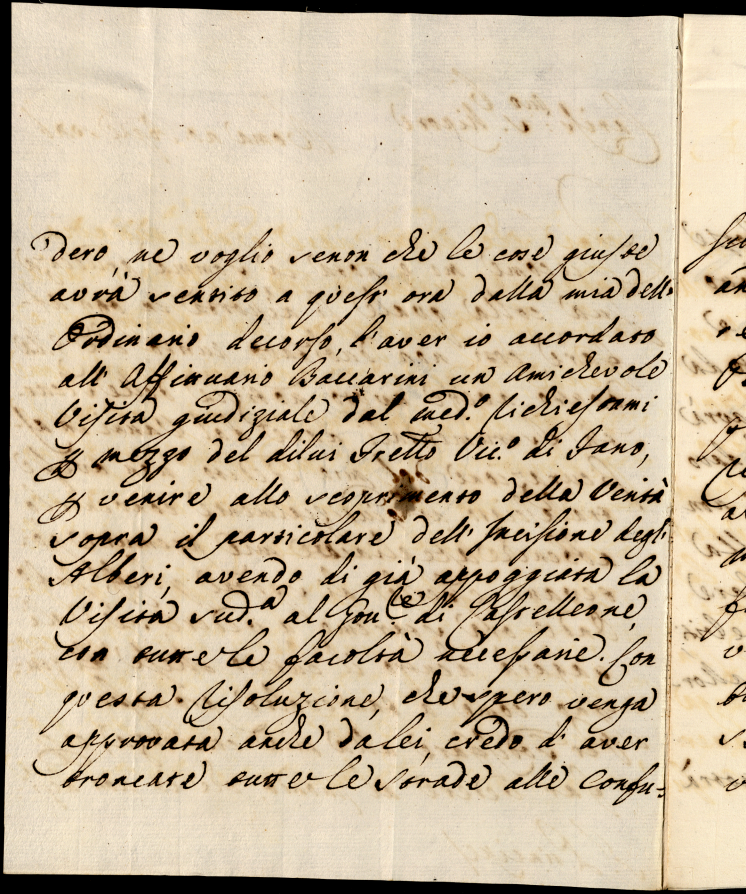 dero, ne voglio se non che le cose giuste
avrà sentito a quest' ora dalla mia dell'
Ordinario decorso, l'aver io accordato
all' Affittuario Baccarini un Amichevole
Visita giudiziale dal med.o richiestami
p mezzo del dilui Fretto Vic.o di Fano,
p venire allo scoprimento della Verità
sopra il particolare dell' Incisione degl'
Alberi, avendo di già appoggiata la
Visita sud.a al Gov.re di Castelleone,
con tutte le facoltà necessarie. Con
questa risoluzione, che spero venga
approvata anche da lei, credo d' aver
troncate tutte le Strade alle Confu-